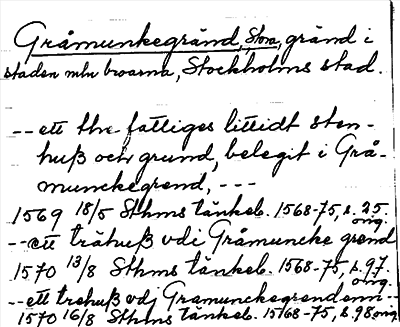 Gråmunkegränd, Stora, gränd i
staden mln broarna, Stockholms stad.
-- ett thr fattiges littidt sten-
huß och grund, belegit i Grå-
munckegrend, ---
1569 18/5 Sthms tänkeb. 1568-75, s. 25.
orig.
-- ett trähuß vdi Gråmuncke grend
1570 13/8 Sthms tänkeb. 1568-75, s. 97.
orig.
-- ett trehuß vdj Gramunckegrendenn --
1570 16/8 Sthms tänkeb. 1568-75, s. 98 orig.